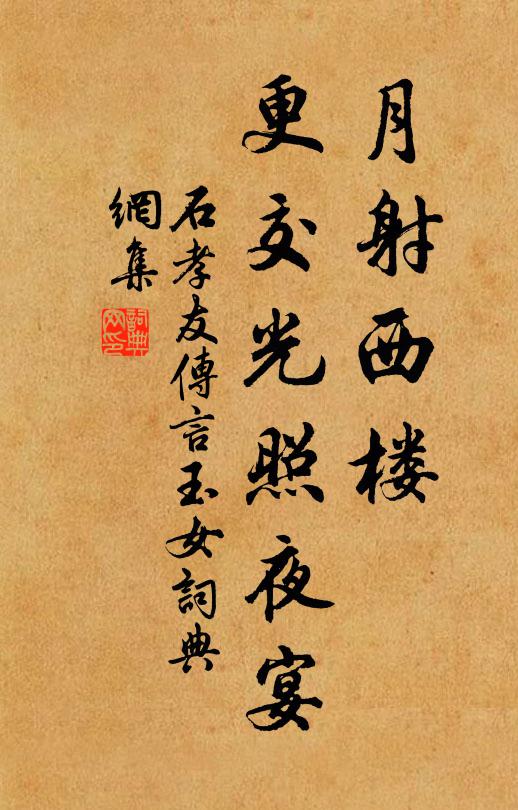 月射西楼
更交光照夜宴
石孝友傳言玉女詞典
網集
詞典
文印